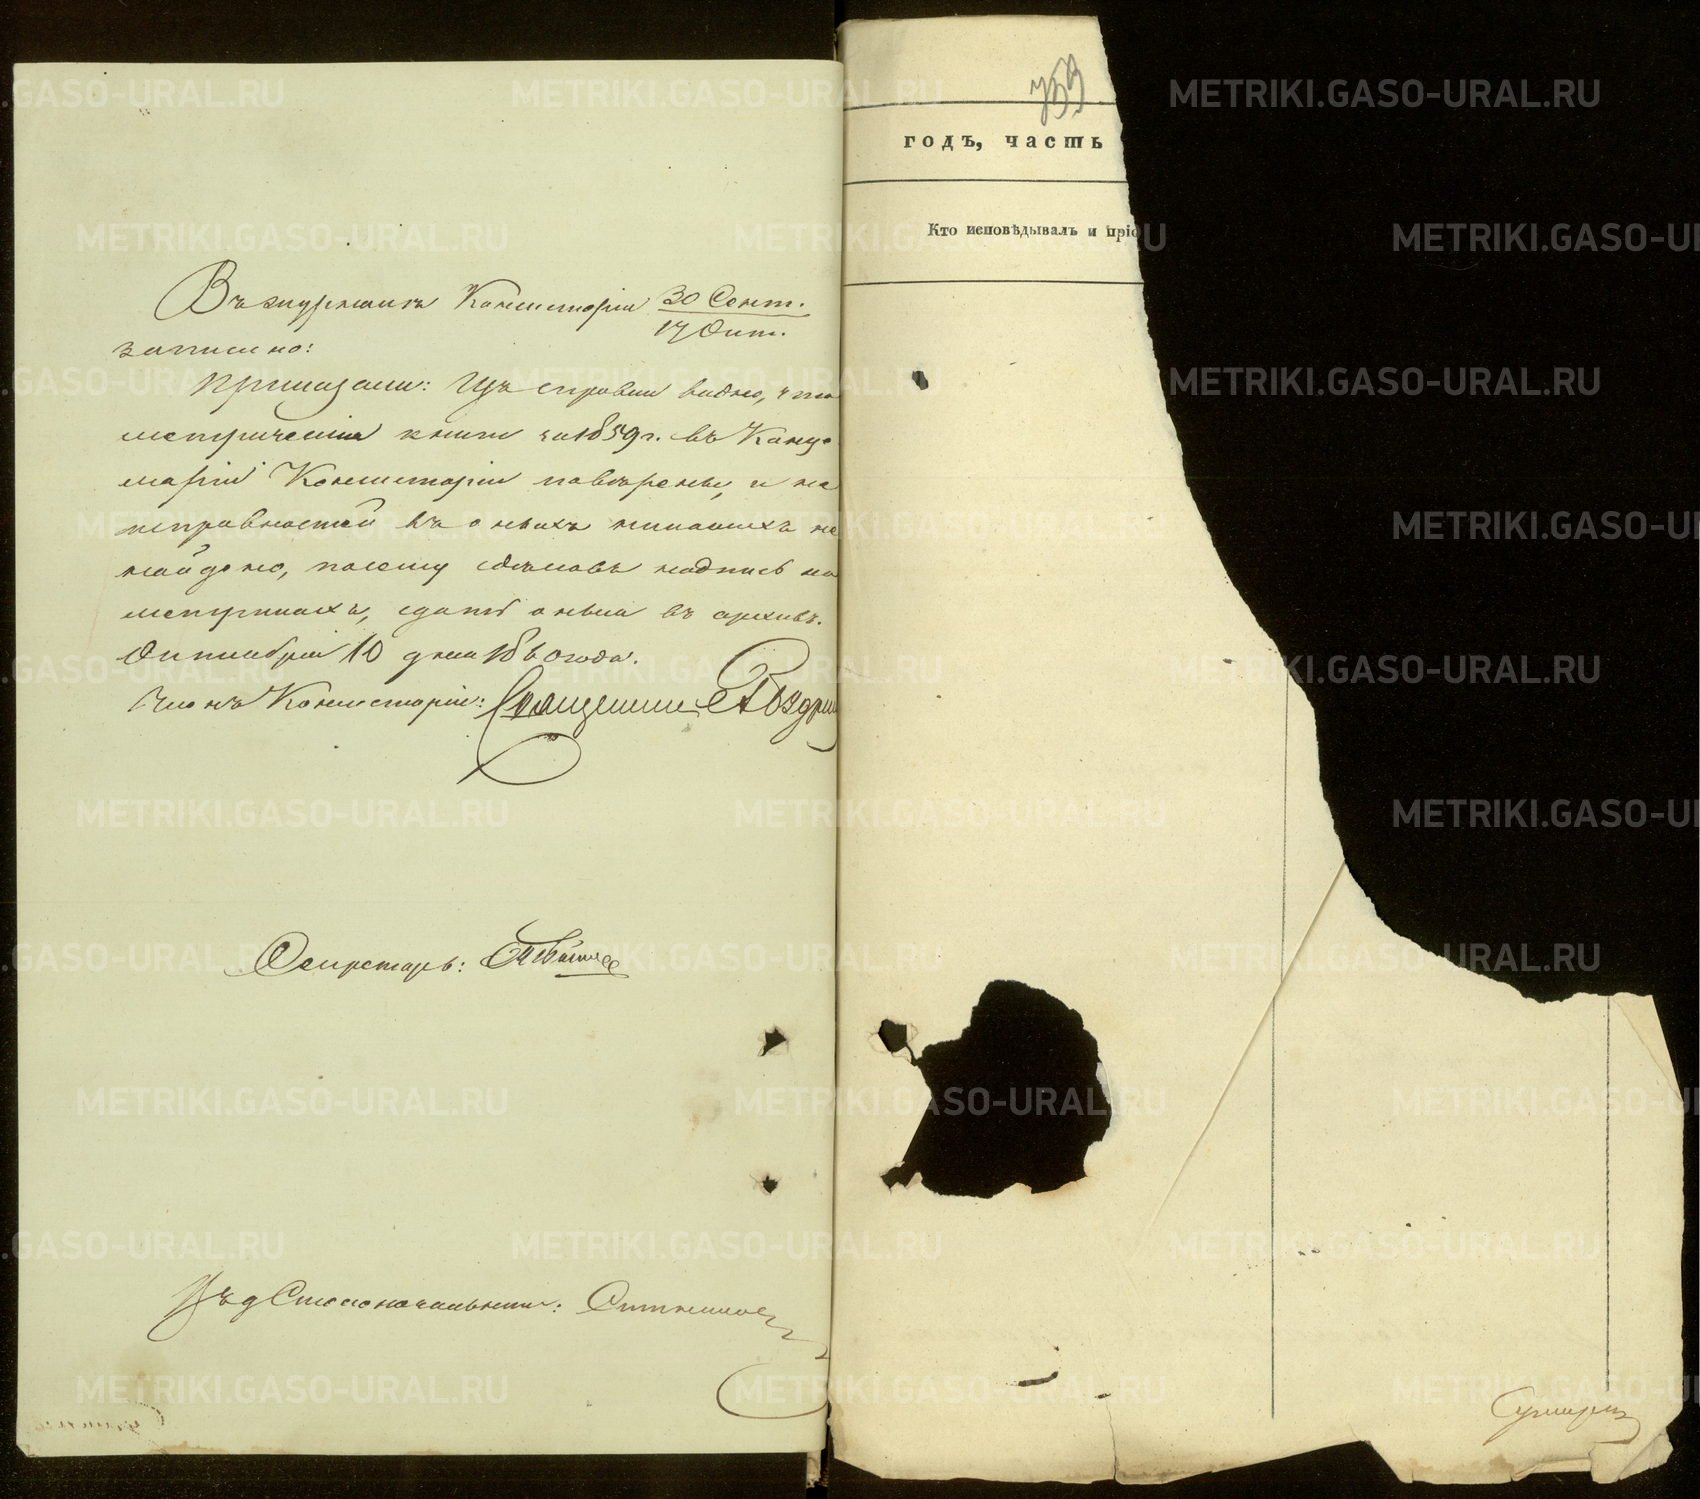 Въ журналѣ Консисторіи 30 Сент.
17 Окт.
записано:
Приказали: Изъ справки видно, что
метрическія книги за 1859 г. въ Канце
ляріи Консисторіи повѣрены, и не
исправностей въ оныхъ никакихъ не
найдено, посему сдѣлавъ надпись на
метрикахъ, сдать оныя въ архивъ.
Октября 10 дня 1860 года.
Членъ Консисторіи: Священникъ
Секретарь:
Столоначальника:
753
годъ, часть
Кто исповѣдывалъ и пріо
METRIKI.GASO-URAL.RU